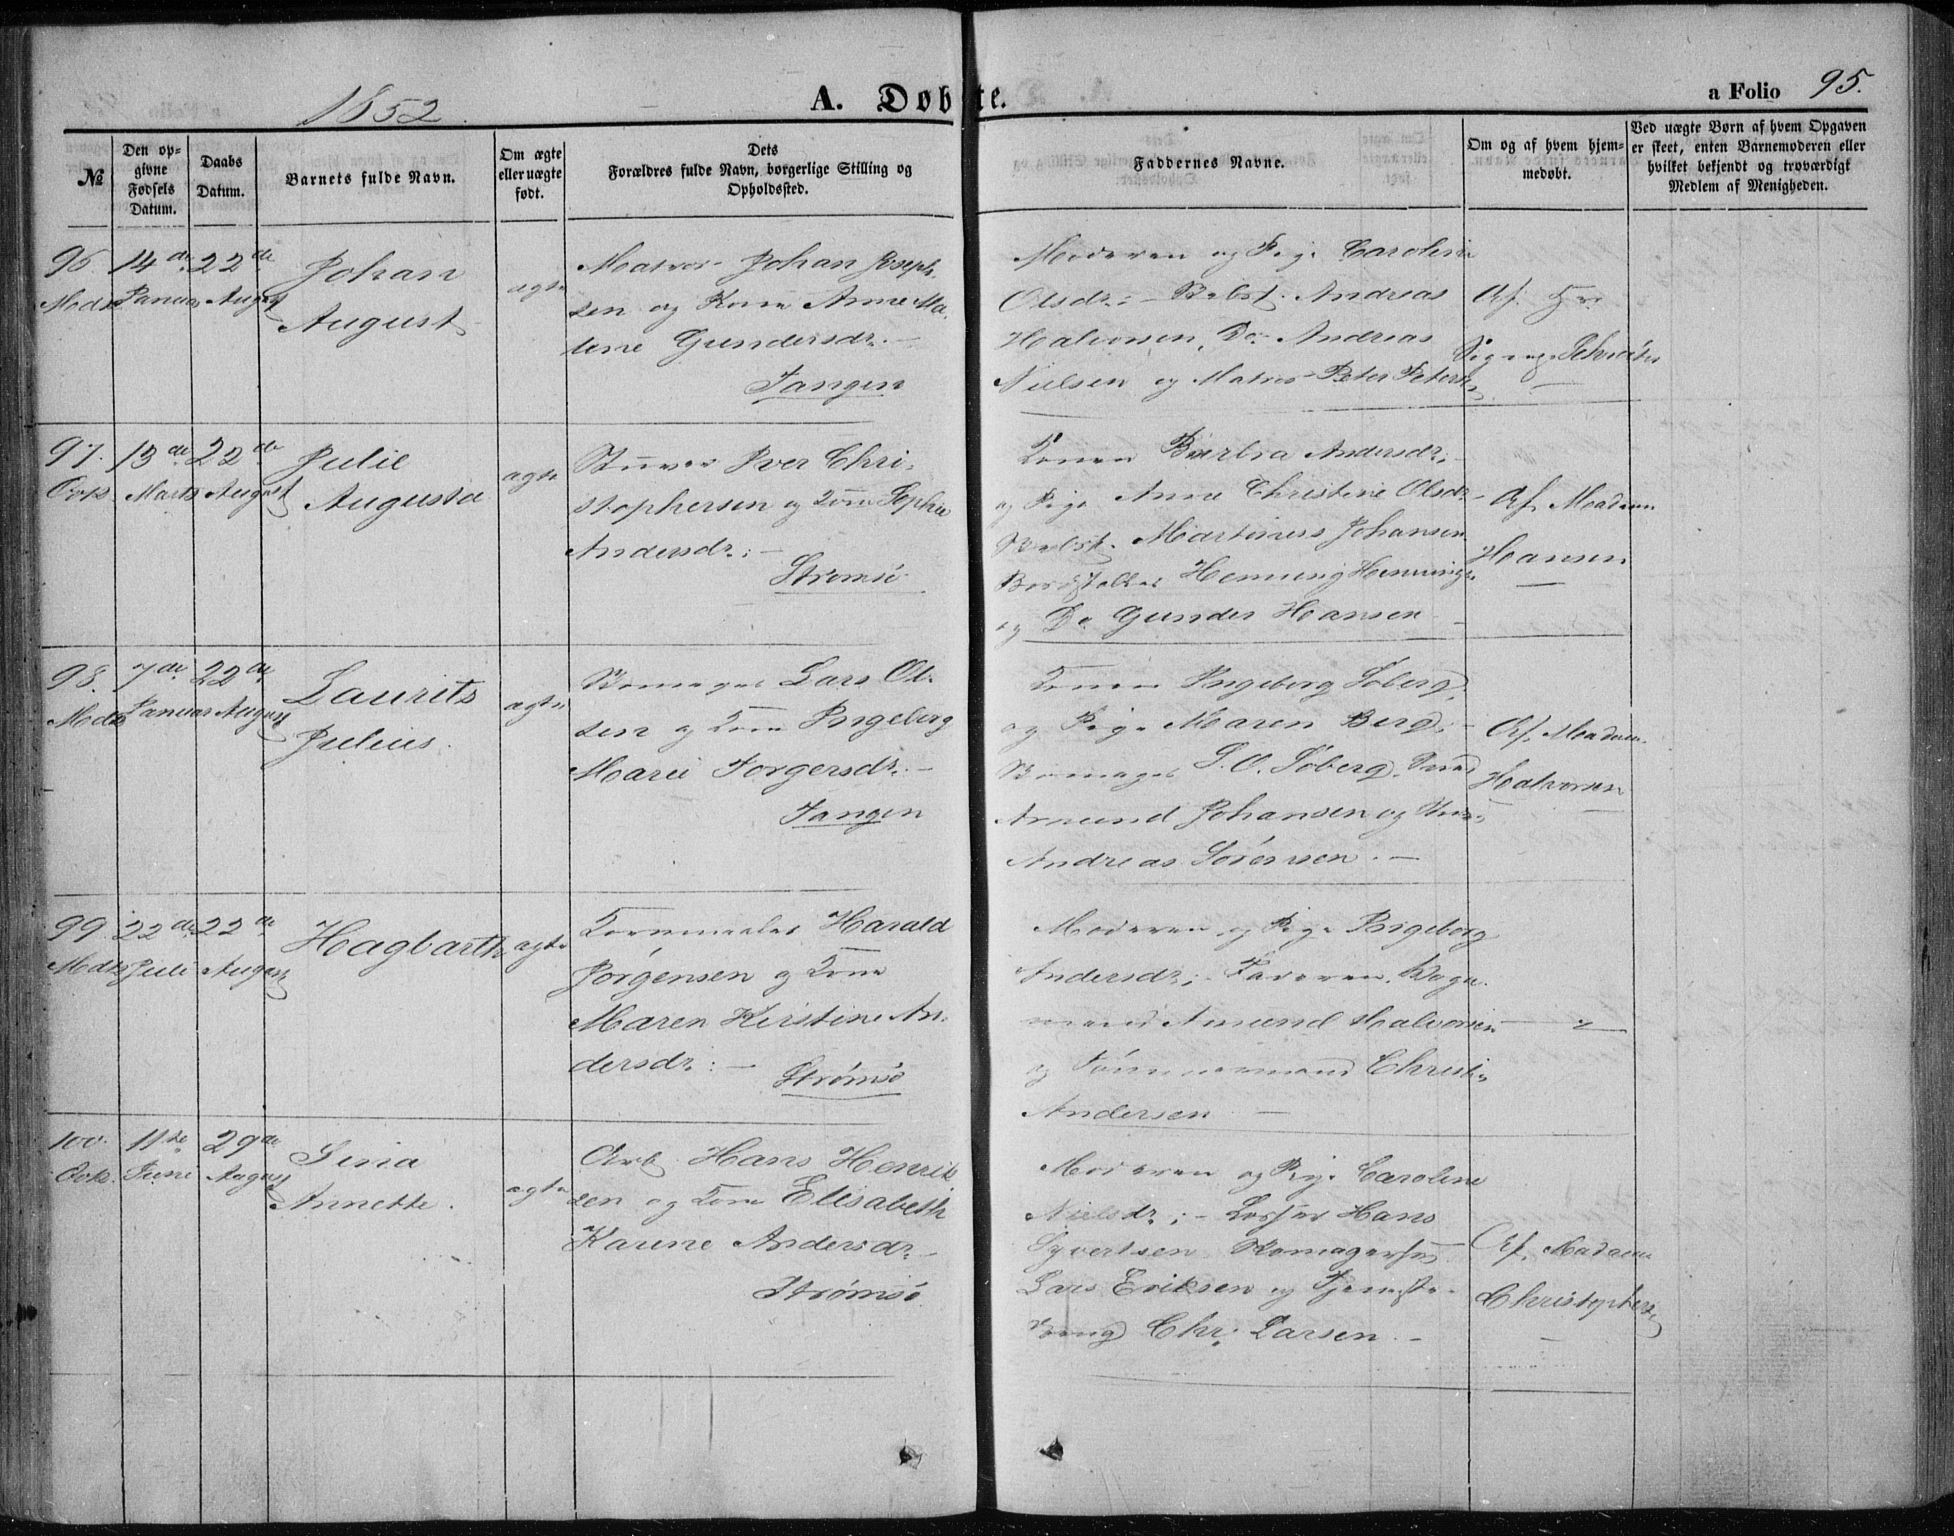 1852.
A. Døbte.
a Folio 95.
№
Den opgivne Fødsels Datum.
Daabs Datum.
Barnets fulde Navn.
Om ægte eller uægte født.
Dets Forældres fulde Navn, borgerlige Stilling og Opholdssted.
Faddernes Navne.
Om og af hvem hjemmedøbt.
Ved uægte Børn af hvem Opgaven er skeet, enten Barnemoderen eller hvilket bekjendt og troværdigt Medlem af Menigheden.
96 14de 22de
Januar August
Johan
August
ægte
Matros Johan Joseph-
sen og Kone Anne Ma-
lene Gundersdr: —
Tangen
Moderen og Pige Caroline
Olsdr: — Andreas
Halvorsen, Do Andreas
Nielsen og Matros Peter Peters
Af
Schrøter
97. 13de 22de
Marts August
Julie
Augusta
ægte
Stuver Iver Chri-
stophersen og Kone Sophie
Andersdr: —
Strømsø
Konen Barbra Andersdr:
og Pige Anne Christine Olsdr
Martinius Johansen
Henning Henningse
og Do Gunder Hansen
Af Madam
Hansen
98. 7de 22de
Januar August
Laurits
Julius.
ægte
Lars Ol-
sen og Kone Ingeborg
Marie Torgersdr: —
Tangen
Konen Ingeborg Soberg
og Pige Maren Berg: —
L. O. Soberg,
Amund Johansen og
Andreas Sørensen. —
Af Madam
Halvorsen
99 22de 22de
Juli August
Hagbarth
ægte
Harald
Jørgensen og Kone
Maren Kirstine An-
dersdr: —
Strømsø
Moderen og Pige Ingeborg
Andersdr: — Faderen. Vogn-
mand Amund Halvorsen
og Tømmermand Christ:
Andersen —
100. 11te 29de
Juni August
Sina
Annette.
ægte
Arb. Hans Henrik
sen og Kone Elisabeth
Karine Andersdr
Strømsø
Moderen og Pige Caroline
Nielsdr: — Hans
Syvertsen
Lars Eriksen og Tjeneste-
dreng Chr: Larsen. —
Af Madam
Christophers